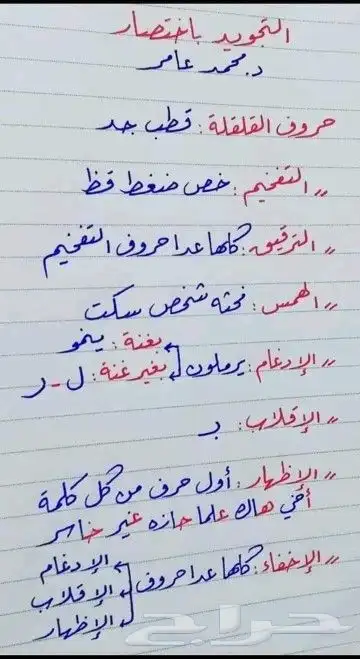 التجويد باختصار
د. محمد عامر
حروف القلقلة: قطب جد
〃 التفخيم: خص ضغط قظ
〃 الترقيق: كلها عدا حروف التفخيم
〃 الهمس: فحثه شخص سكت
〃 الإدغام: يرملون بغنة: ينمو
بغير غنة: ل - ر
〃 الإقلاب: ب
〃 الإظهار: أول حرف من كل كلمة
أخي هاك علما حازه غير خاسر
〃 الإخفاء: كلها عدا حروف الإدغام
الإقلاب
الإظهار
حراج